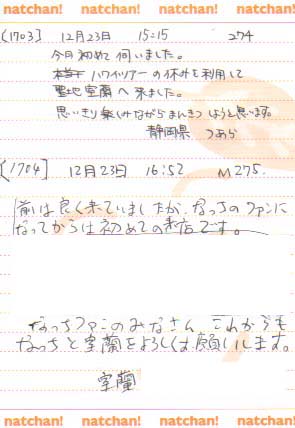 natchan! natchan! natchan! natchan!
(1703) 12月23日 15:15 274
今日初めて伺いました。
ハワイツアーの休みを利用して
聖地室蘭へ来ました。
思いきり楽しみながらまんきつしようと思います。
静岡県 つあら
(1704) 12月23日 16:52 M275.
前は良く来ていましたが、なっちのファンに
なってからは初めての来店です。
なっちファンのみなさん これからも
なっちと室蘭をよろしくお願いします。
室蘭
natchan! natchan! natchan! natchan!